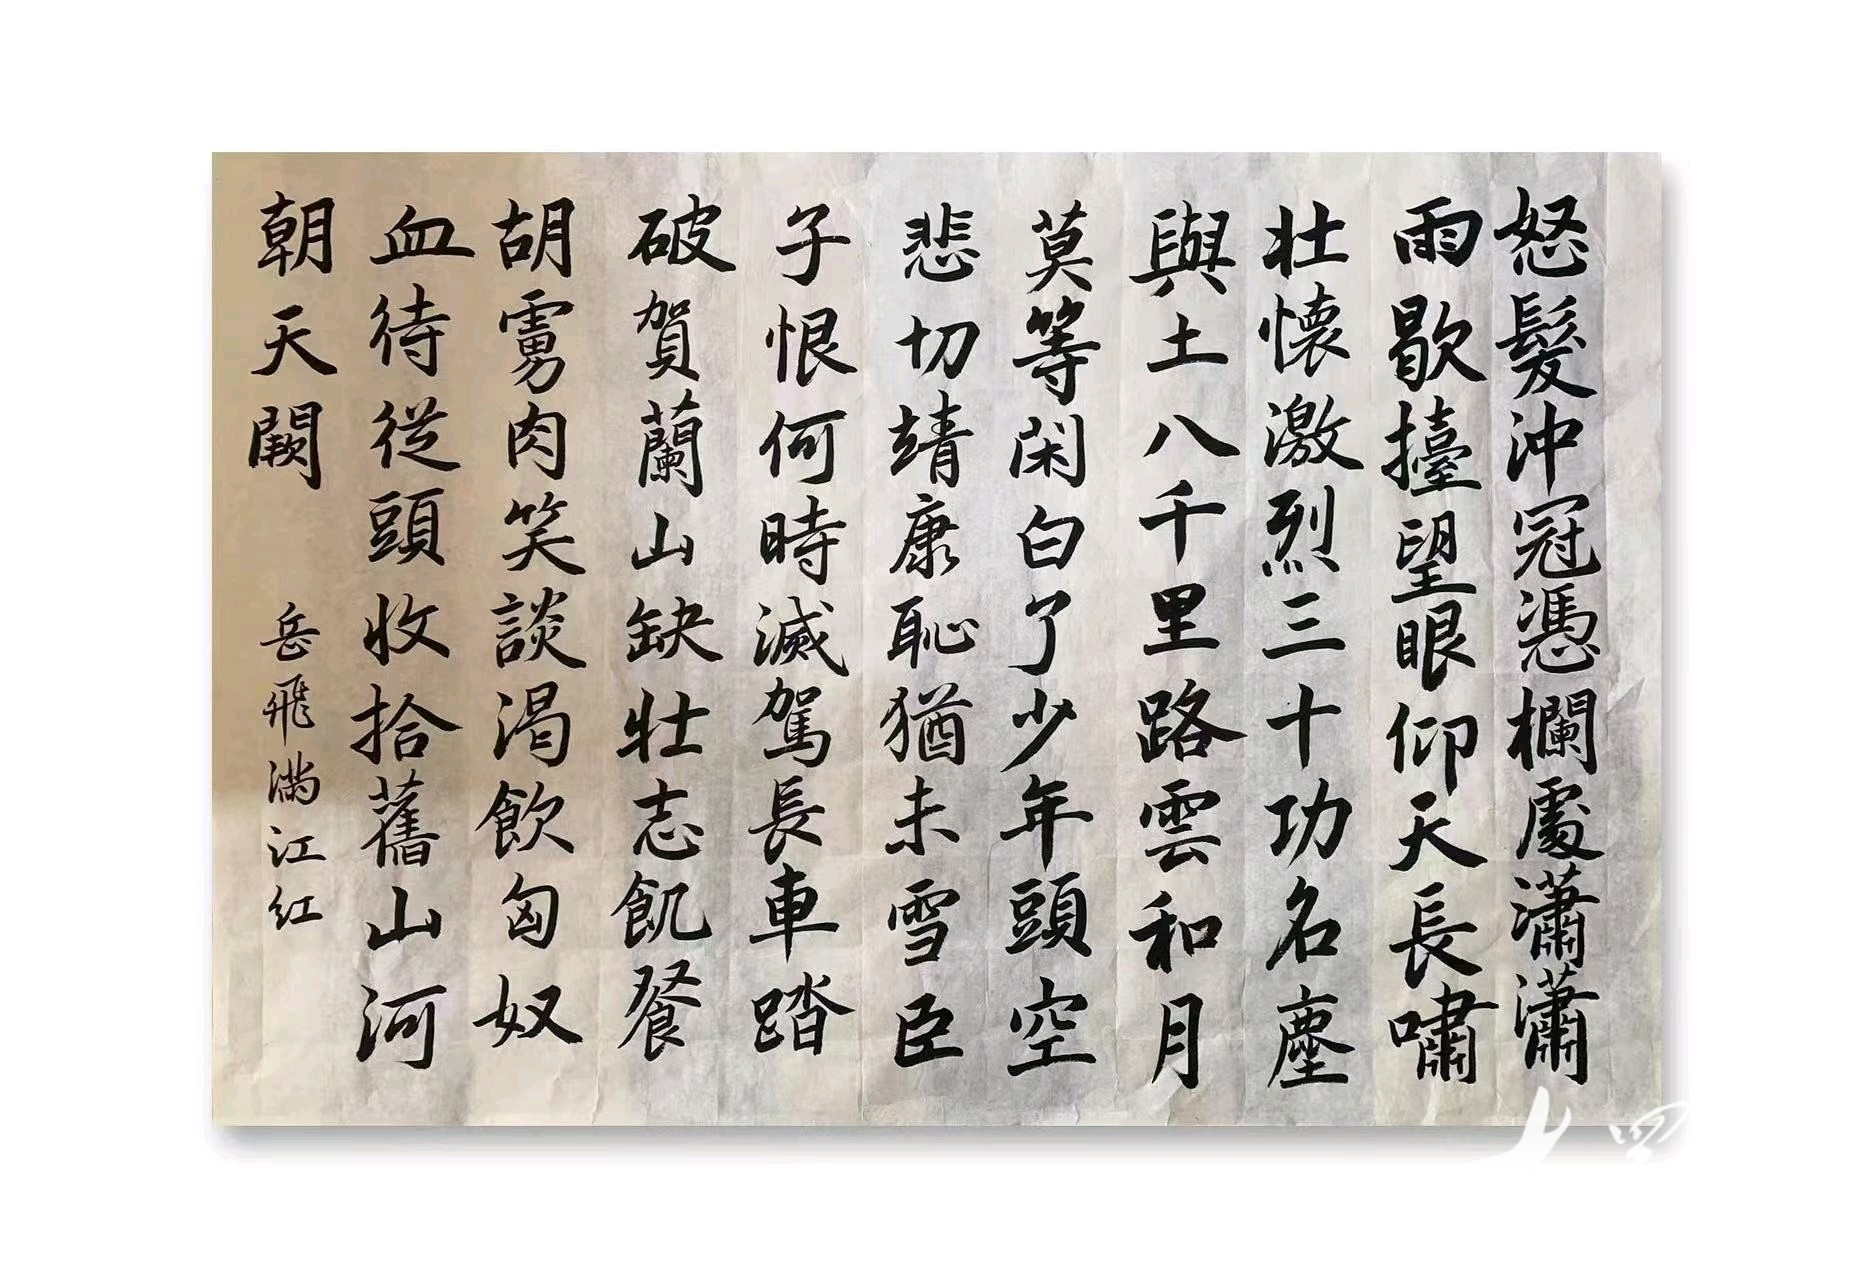 怒髮沖冠憑欄處瀟瀟
雨歇擡望眼仰天長嘯
壯懷激烈三十功名塵
與土八千里路雲和月
莫等閑白了少年頭空
悲切靖康恥猶未雪臣
子恨何時滅駕長車踏
破賀蘭山缺壯志飢餐
胡虜肉笑談渴飲匈奴
血待從頭收拾舊山河
朝天闕
岳飛满江红